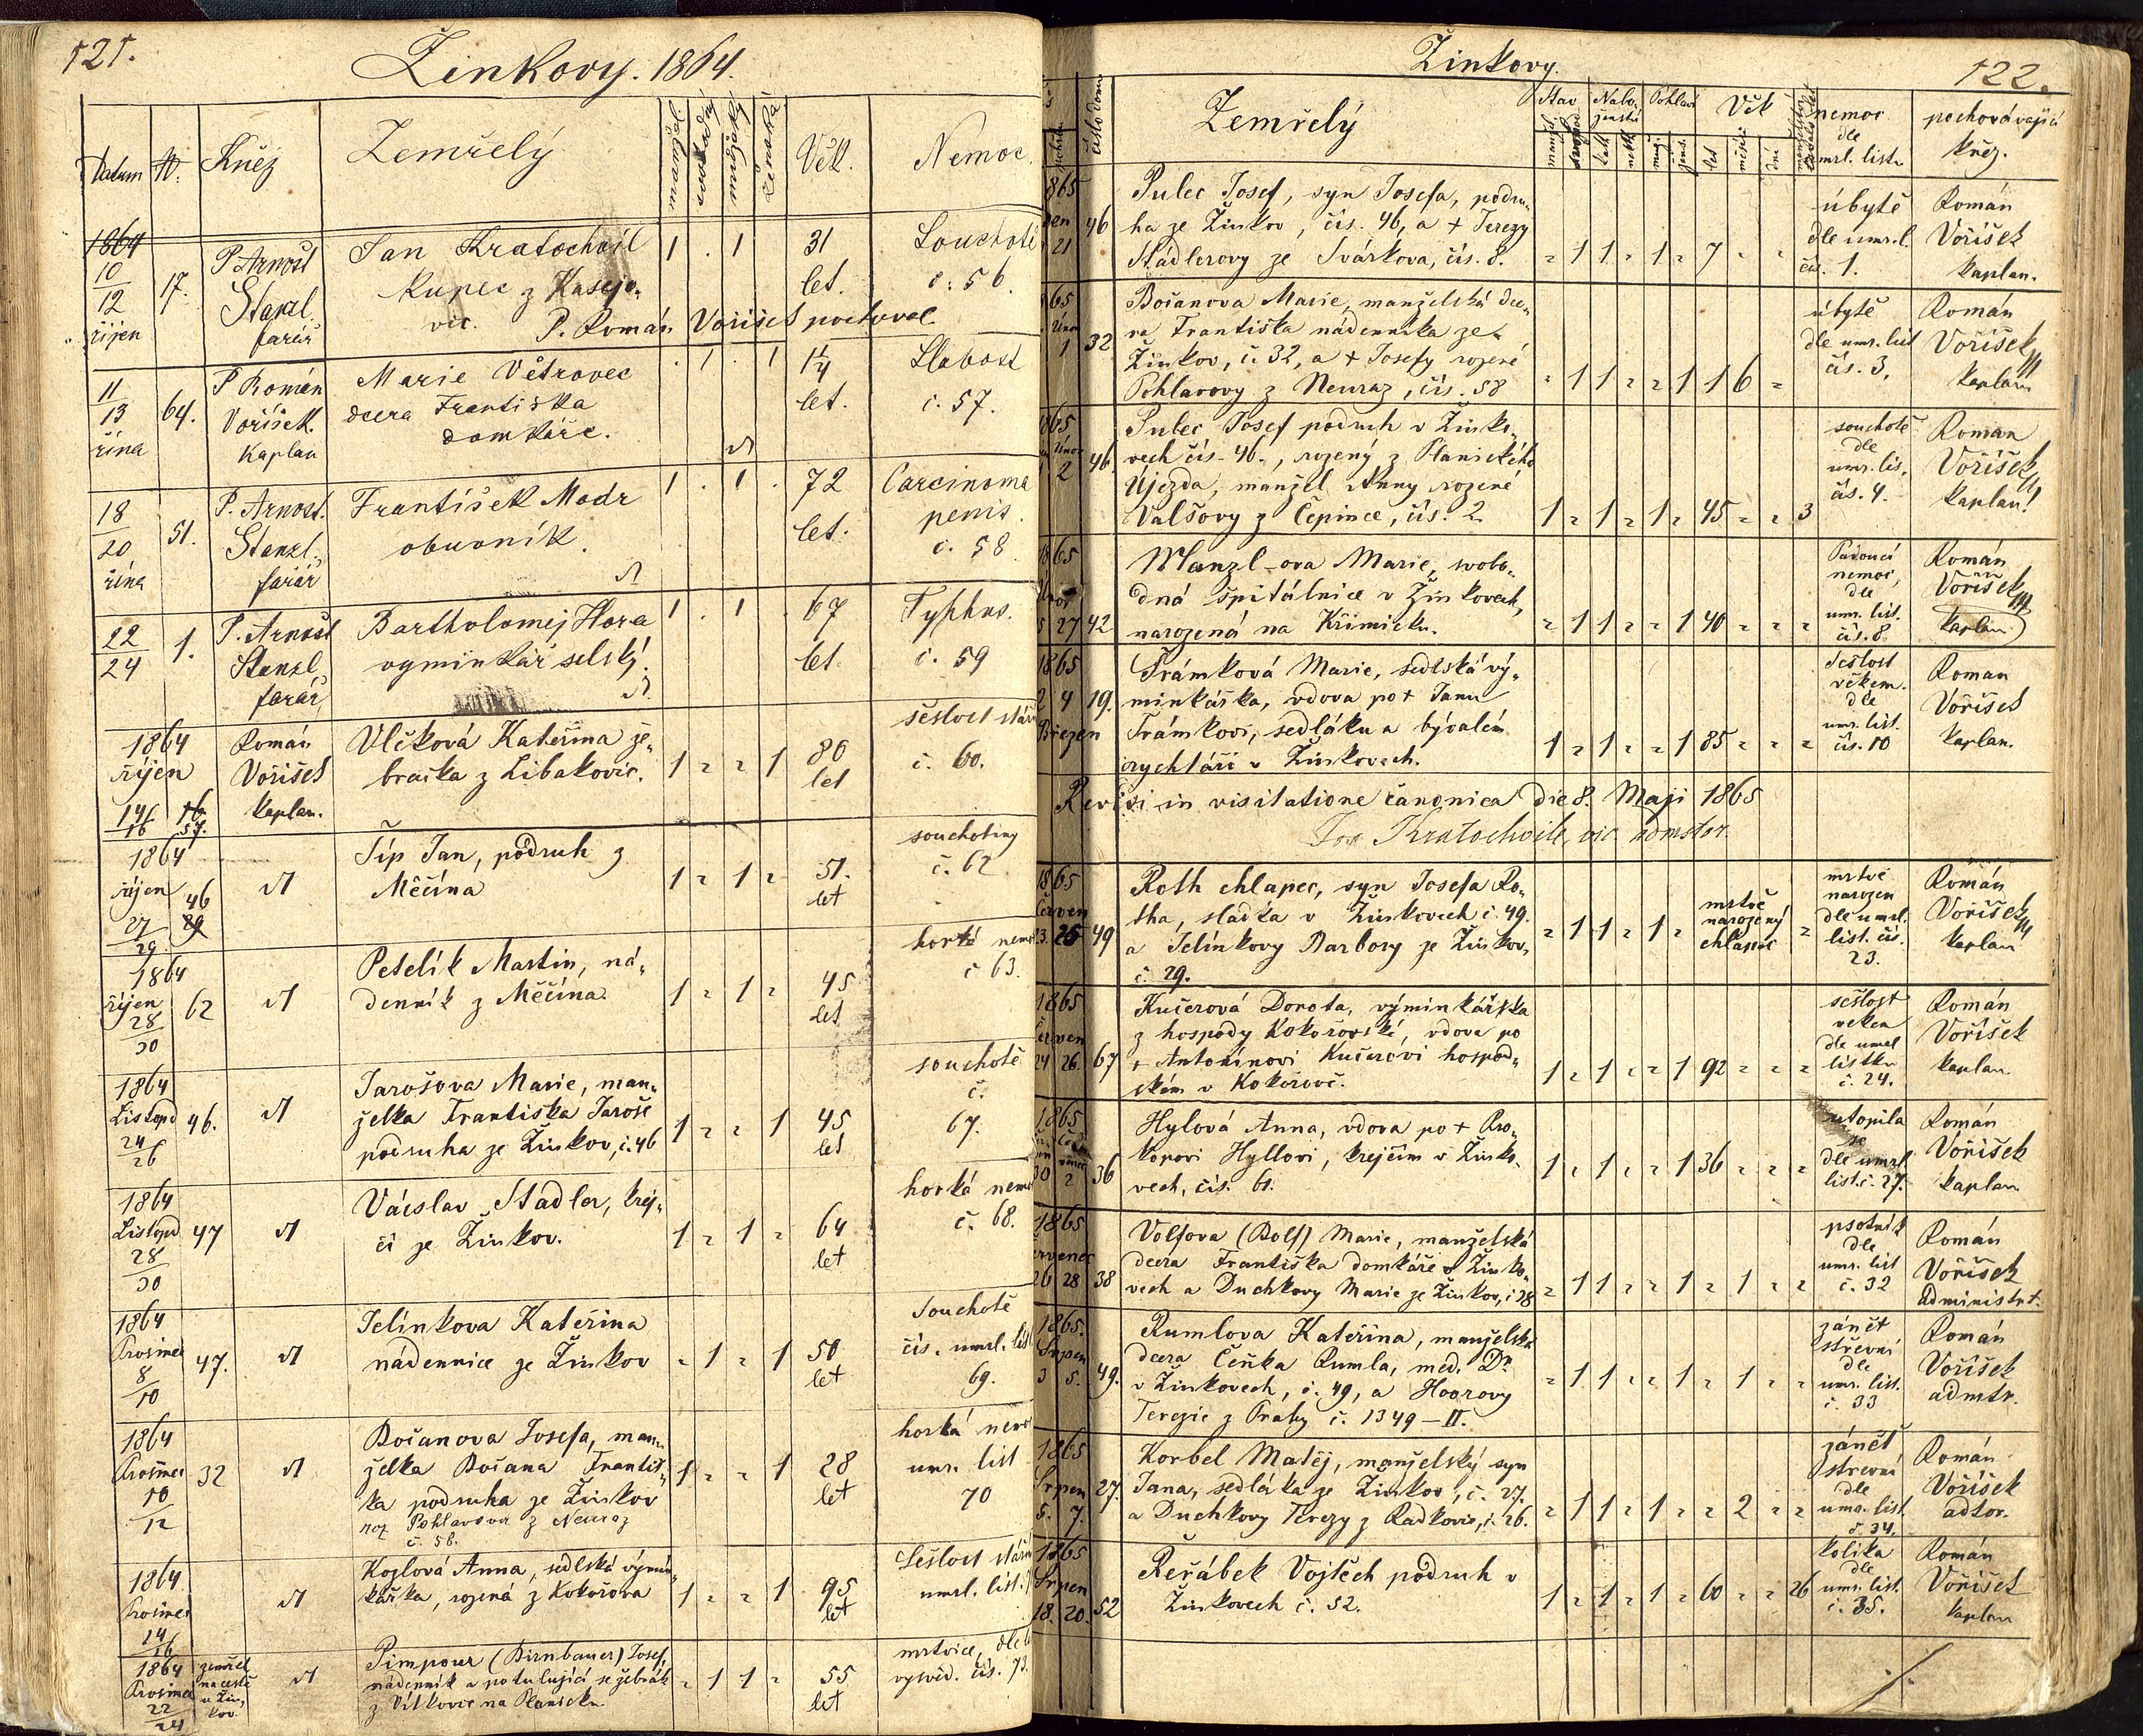 121.
Žinkovy. 1864.
Datum
Kněz
Zemřelý
Věk.
Nemoc.
1864
10
12
říjen
17.
P. Arnošt
Stanzl.
farář
Jan Kratochvil
kupec z Kasejo-
vic.
P. Román Voříšek pochoval
1 . 1
31
let.
Souchotě
č. 56.
11
13
října
64.
P. Román
Voříšek.
Kaplan
Marie Větrovec
dcera Františka
domkáře.
. 1 . 1
1 1/4
let.
Slabost
č. 57.
18
20
října
51.
P. Arnošt.
Stanzl.
farář
František Modr
obuvník.
1 . 1 .
72
let.
Carcinoma
penis.
č. 58
22
24
1.
P. Arnošt
Stanzl
farář
Bartholomej Hora
vyminkář selský.
1 . 1 .
67
let.
Typhus.
č. 59
1864
říjen
14
16
57.
Román
Voříšek
kaplan.
Vlčková Kateřina že-
bračka z Libakovic.
1 " " 1
80
let
sešlost stář
č. 60.
1864
říjen
27
29
46
Típ Jan, podruh z
Měčína
1 " 1 "
51.
let
souchotiny
č. 62
1864
říjen
28
30
62
Petelík Martin, ná-
denník z Měčína
1 " 1 "
45
let
horká nemo
č 63.
1864
Listopd
24
26
46.
Jarošova Marie, man-
želka Františka Jaroše
podruha ze Žinkov, č. 46
1 " " 1
45
let
souchotě
č.
67.
1864
Listopd
28
30
47
Václav Stadler, krej-
čí ze Žinkov.
1 " 1 "
64
let
horká nemo
č. 68.
1864
Prosinec
8
10
47.
Jelínkova Kateřina
nádennice ze Žinkov
" 1 " 1
50
let
souchotě
čís. umrl. list
69.
1864
Prosinec
10
12
32
Bočanova Josefa, man-
želka Bočana Františ-
ka podruha ze Žinkov
roz. Pohlavova z Neuraz
č. 58.
1 " " 1
28
let
horká
umr. list
70
1864
Prosinec
14
16
Kozlová Anna, sedlská výmin-
kářka, rozená z Kokořova
1 " " 1
95
let
Sešlost stář
umrl. list.
1864
Prosinec
22
24
zemřel
na cestě
u Žin-
kov.
Pimpour (Birnbauer) Josef,
nádenník a potulující se žebrák
z Vítkovic na Planicku
" 1 1 "
55
let
mrtvice, dle
vysvěd. čís. 73.
Žinkovy.
122.
číslo domu
Zemřelý
Stav
Nábo-
ženství
Pohlaví
Věk
nemoc
dle
mrl. listu
pochovávající
kněz.
let
měsíc
dní
1865
21
46
Pulec Josef, syn Josefa, podru-
ha ze Žinkov, čís. 46, a + Terezy
Stádlerovy ze Svárkova, čís. 8.
" 1 1 " 1 " 7 " "
úbytě
dle umr. l.
čís. 1.
Román
Voříšek
kaplan.
1865
Únor
1
32
Bočanova Marie, manželská dce-
ra Františka nádenníka ze
Žinkov, č. 32, a + Josefy rozené
Pohlavovy z Neuraz, čís. 58
" 1 1 " " 1 1 6 "
úbytě
dle umr. list
čís. 3.
Román
Voříšek
kaplan
1865
Únor
2
46
Pulec Josef podruh v Žinko-
vech čís. 46., rozený z Planického
Újezda, manžel Anny rozené
Valšovy z Čepince, čís. 2.
1 " 1 " 1 " 45 " " 3
souchotě
dle
umr. lis,
čís. 4.
Roman
Voříšek
kaplan!
1865
Únor
27
42
Manzl-ova Marie, svobo-
dná špitálnice v Žinkovech,
narozená na Křimicku.
" 1 1 " " 1 40 " " "
Padoucí
nemoc,
dle
umr. list.
čís. 8
Román
Voříšek
kaplan
1865
2 4
Březen
19.
Trámková Marie, sedlská vý-
minkářka, vdova po + Janu
Trámkovi, sedláku a bývalém
rychtáři v Žinkovech.
1 " 1 " " 1 85 " " "
Sešlost
věkem.
dle
umr. list.
čís. 10
Roman
Voříšek
kaplan.
Revisi in visitatione canonica die 8. Maji 1865
Kratochvile, vic. admstor.
1865
Červen
23. 25
49
Roth chlapec, syn Josefa Ro-
tha, sládka v Žinkovech č. 49.
a Jelínkovy Barbory ze Žinkov,
č. 29.
" 1 1 " 1 "
mrtvě
narozený
chlapec
mrtvě
narozen
dle umrl.
list. čís.
23.
Román
Voříšek
kaplan
1865
Červen
24 26.
67
Kučerová Dorota, výminkářka
z hospody Kokořovské, vdova po
+ Antonínovi Kučerovi hospod-
ském v Kokořově.
1 " 1 " " 1 92 " " "
sešlost
věkem
dle umrl
lístku
č. 24.
Román
Voříšek
kaplan.
1865
30 2
36
Hylová Anna, vdova po + Pro-
kopovi Hyllovi, krejčím v Žinko-
vech, čís. 61.
1 " 1 " " 1 36 " " "
utopila
se
dle umrl
list. č. 27.
Román
Voříšek
kaplan
1865
Červenec
26 28
38
Volfova (Bolf) Marie, manželská
dcera Františka domkáře v Žinko-
vech a Duchkovy Marie ze Žinkov, č 38
" 1 1 " " 1 " 1 " "
psotník
dle
umr. list
č. 32
Román
Voříšek
administrt.
1865.
Srpen
3 5.
49.
Rumlova Kateřina, manželská
dcera Čeňka Rumla, med. Dr.
v Žinkovech, č. 49, a Hoorovy
Terezie z Prahy č. 1349 — II.
" 1 1 " " 1 " 1 " "
zánět
střevní
dle
umr. list.
č. 33
Román
Voříšek
admtr.
1865
Srpen
5. 7.
27.
Korbel Matěj, manželský syn
Jana, sedláka ze Žinkov, č. 27.
a Duchkovy Terezy z Radkovic, č. 26.
" 1 1 " 1 " " 2 " "
zánět
střevní
dle
umr. list.
č. 34.
Román
Voříšek
adtor.
1865
Srpen
18. 20.
52
Řeřábek Vojtěch podruh v
Žinkovech č. 52.
1 " 1 " 1 " 60 " " 26
kolika
dle
umr. list.
č. 35.
Román
Voříšek
kaplan